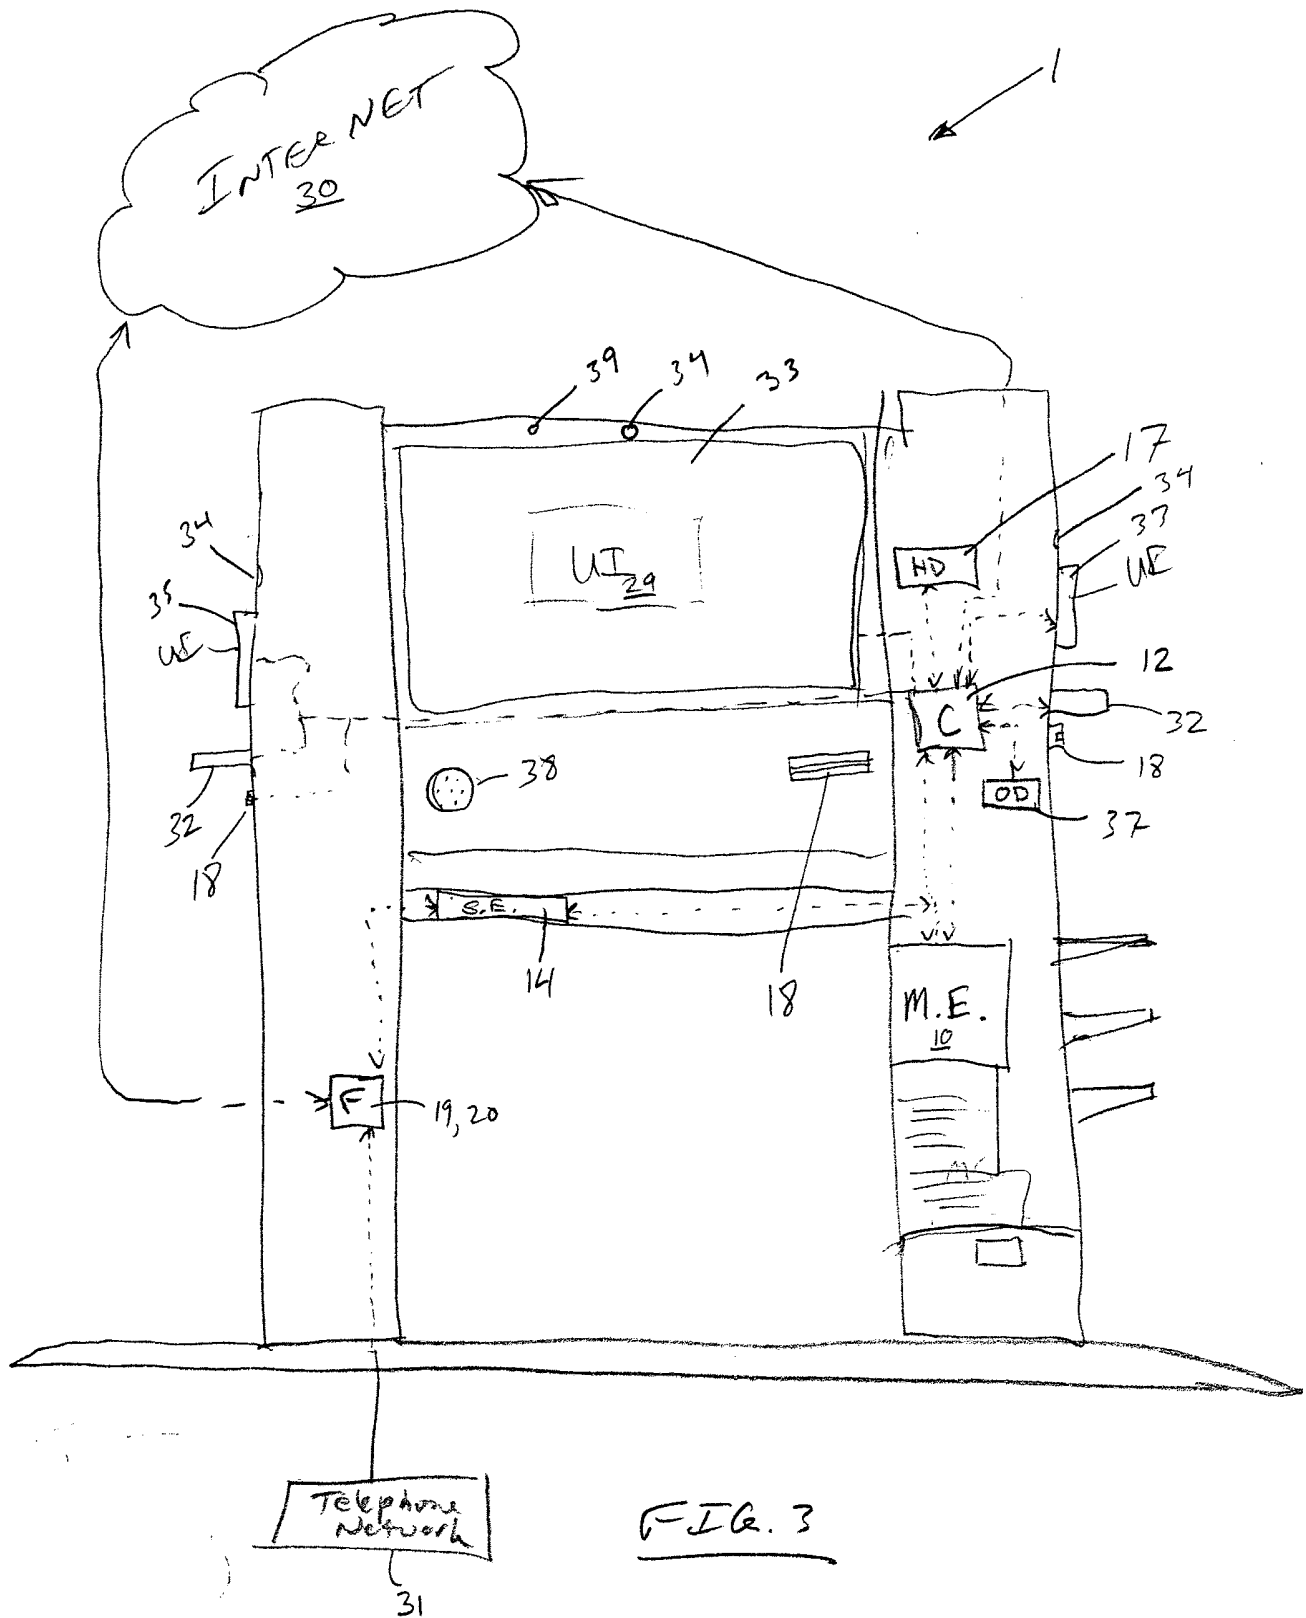 1
INTERNET
30
39
34
33
17
34
33
UI
HD
UI
29
34
35
UI
12
C
32
18
OD
37
38
32
18
S.E.
14
18
M.E.
10
F
19,20
Telephone
Network
31
FIG. 3